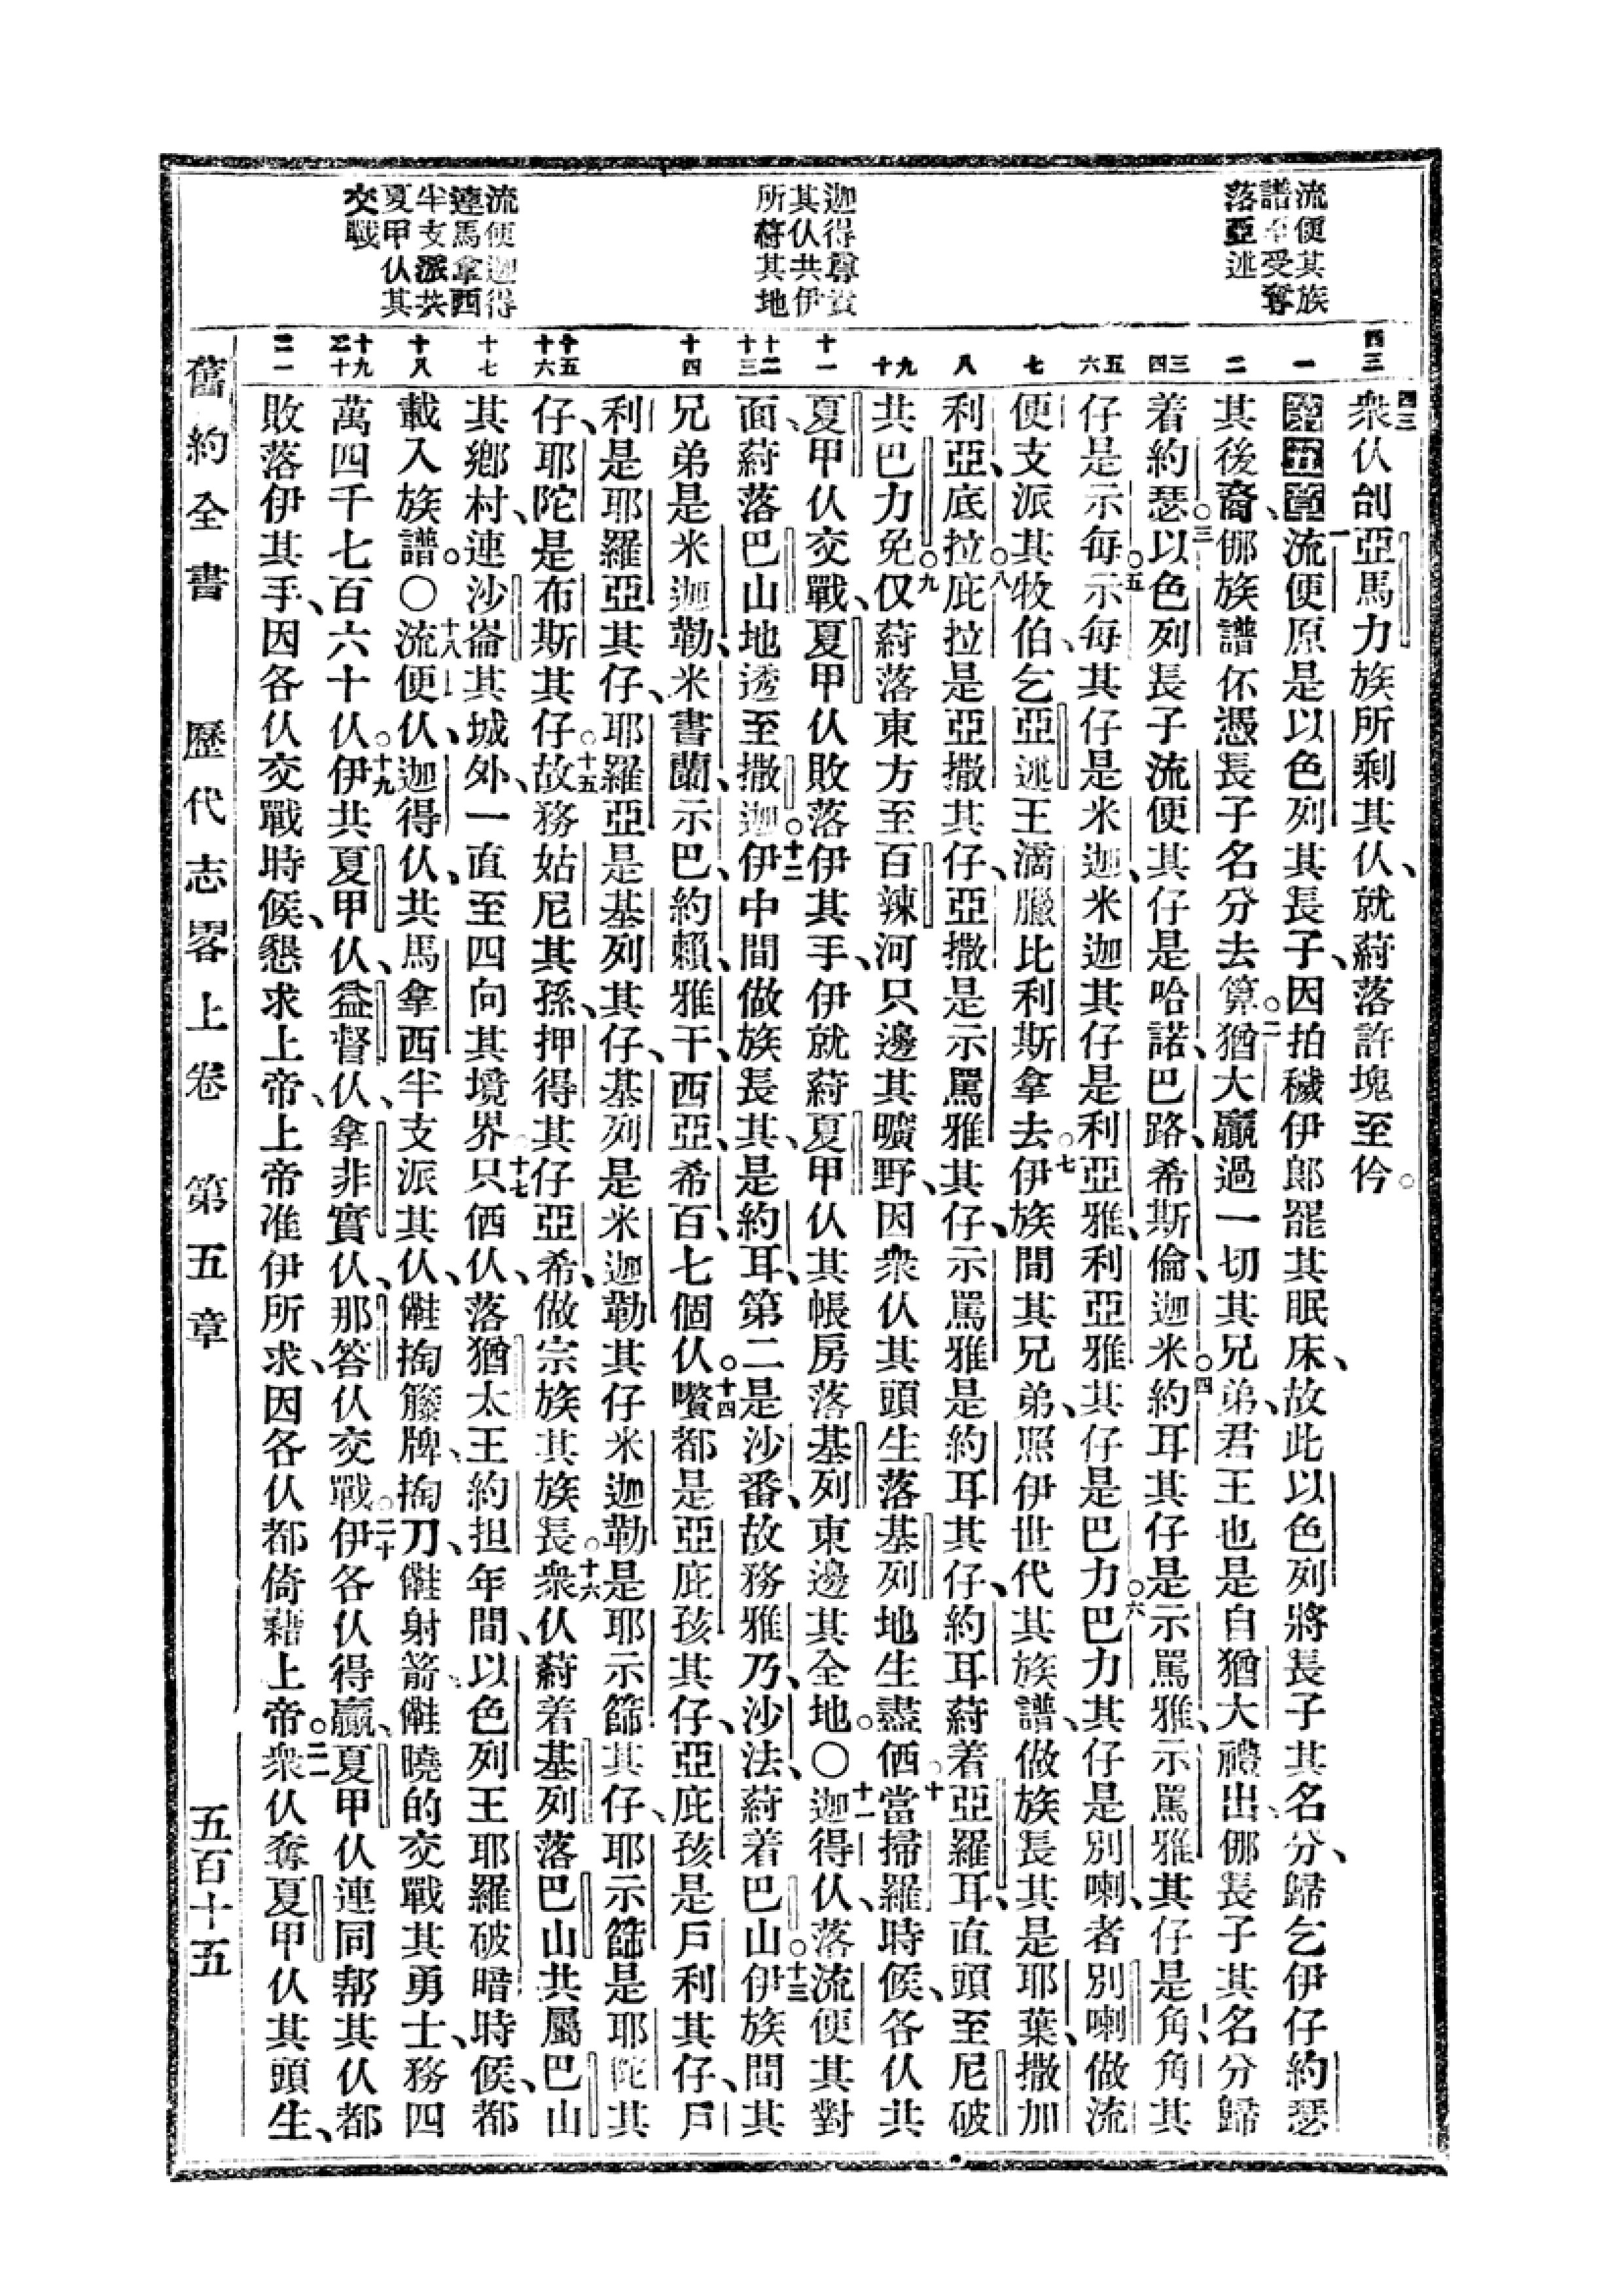 流便其族
譜受奪
落亞述
迦得尊貴
其仈共伊
所蒋其地
流便迦得
連馬拿西
半支派共
夏甲仈其
交戰
四三
一
二
三
四
五
六
七
八
九
十
十一
十二
十三
十四
十五
十六
十七
十八
十九
二十
二一
四三衆仈刣亞馬力族所剩其仈、就蔚落許塊至仱。
第五章一流便原是以色列其長子、因拍穢伊郎罷其眠床、故此以色列將長子其名分、歸乞伊仔約瑟
其後裔、㑚族譜伓憑長子名分去算。二猶大贏過一切其兄弟、君王也是自猶大禮出、㑚長子其名分歸
着約瑟。三以色列長子流便其仔是哈諾、巴路、希斯倫、迦米。四約耳其仔是示罵雅、示罵雅其仔是角、角其
仔是示每。五示每其仔是米迦、米迦其仔是利亞雅、利亞雅其仔是巴力。六巴力其仔是別喇、者別喇做流
便支派其牧伯、乞亞述王滴臘比利斯拿去。七伊族間其兄弟、照伊世代其族譜、做族長其是耶葉、撒加
利亞、底拉庇拉是亞撒其仔、亞撒是示罵雅其仔、示罵雅是約耳其仔、約耳蔚着亞羅耳、直頭至尼破
共巴力免。九伩蔚落東方至百辣河只邊其曠野、因衆仈其頭生落基列地生盡。十㑚當掃羅時候、各仈共
夏甲仈交戰、夏甲仈敗落伊其手、伊就蔚夏甲仈其帳房落基列東邊其全地。〇十一迦得仈、落流便其對
面、蔚落巴山地透至撒迦。十二伊中間做族長其、是約耳、第二是沙番、故務雅乃、沙法、蔚着巴山。十三伊族間其
兄弟是米迦勒、米書蘭、示巴、約賴、雅干、西亞、希百、七個仈。十四嚽都是亞庇孩其仔、亞庇孩是戶利其仔、戶
利是耶羅亞其仔、耶羅亞是基列其仔、基列是米迦勒其仔、米迦勒是耶示篩其仔、耶示篩是耶陀其
仔、耶陀是布斯其仔。十五故務姑尼其孫、押得其仔亞希、做宗族其族長。十六衆仈蔚着基列落巴山、共屬巴山
其鄉村、連沙崙其城外、一直至四向其境界。十七只㑚仈、落猶太王約担年間、以色列王耶羅破暗時候、都
載入族譜。〇十八流便仈、迦得仈、共馬拿西半支派其仈、𠆧掏籐牌、掏刀、𠆧射箭、𠆧曉的交戰其勇士、務四
萬四千七百六十仈。十九伊共夏甲仈、益督仈、拿非實仈、那答仈交戰。二十伊各仈得贏、夏甲仈連同幇其仈都
敗落伊其手、因各仈交戰時候、懇求上帝、上帝准伊所求、因各仈都倚藉上帝。二一衆仈奪夏甲仈其頭生、
舊約全書 歷代志畧上卷 第五章 五百十五